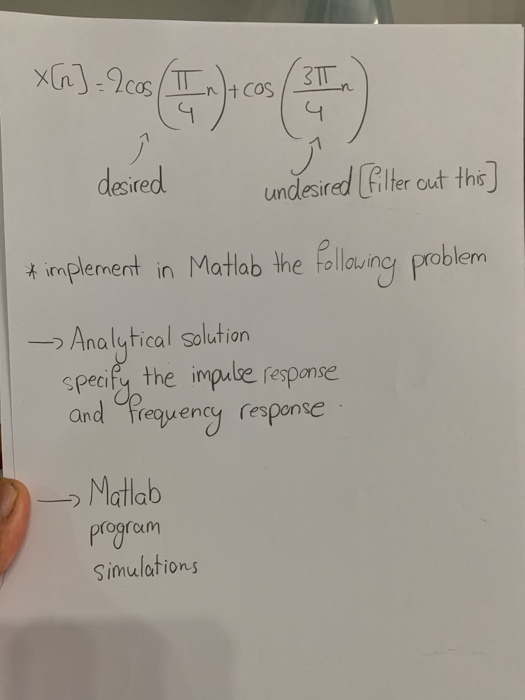 x[n] = 2cos(π/4 n) + cos(3π/4 n)
desired undesired [filter out this]
* implement in Matlab the following problem
→ Analytical solution
specify the impulse response
and frequency response.
→ Matlab
program
simulations